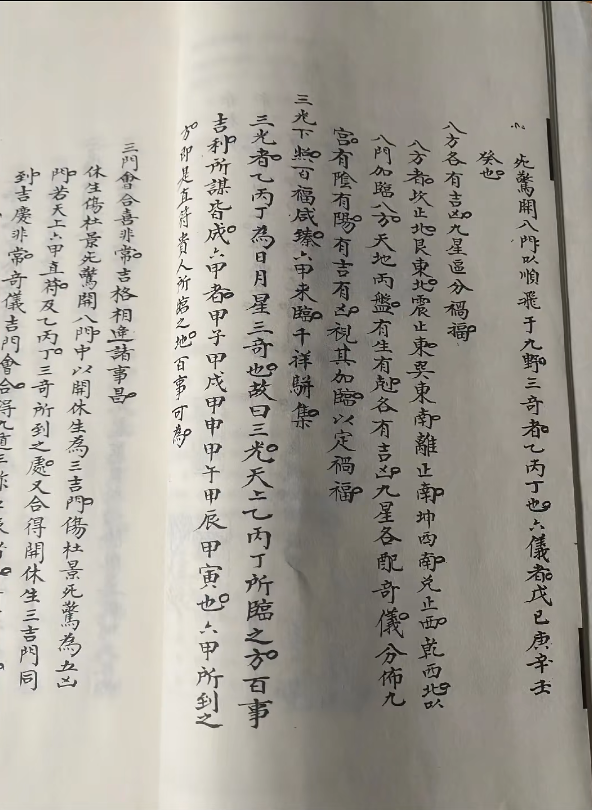 死驚開八門以順飛于九野三奇者乙丙丁也六儀者戊己庚辛壬
癸也
八方各有吉凶九星區分禍福
八方者坎正北艮東北震正東巽東南離正南坤西南兌正西乾西北以
八門加臨八方天地丙盤有生有剋各有吉凶九星各配奇儀分佈九
宮有陰有陽有吉有凶視其加臨以定禍福
三光下照百福咸臻六甲來臨千祥駢集
三光者乙丙丁為日月星三奇也故曰三光天上乙丙丁所臨之方百事
吉利所謀皆成六甲者甲子甲戌甲申甲午甲辰甲寅也六甲所到之
方即是直符貴人所臨之地百事可為
三門會合喜非常吉格相逢諸事昌
休生傷杜景死驚開八門中以開休生為三吉門傷杜景死驚為五凶
門若天上六甲直符及乙丙丁三奇所到之處又合得開休生三吉門同
到吉慶非常奇儀吉門會合得